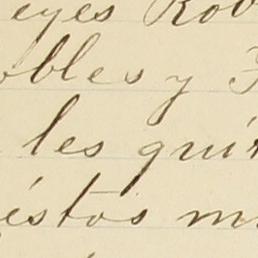 eyes Rob
obles y
les qui
éstos m